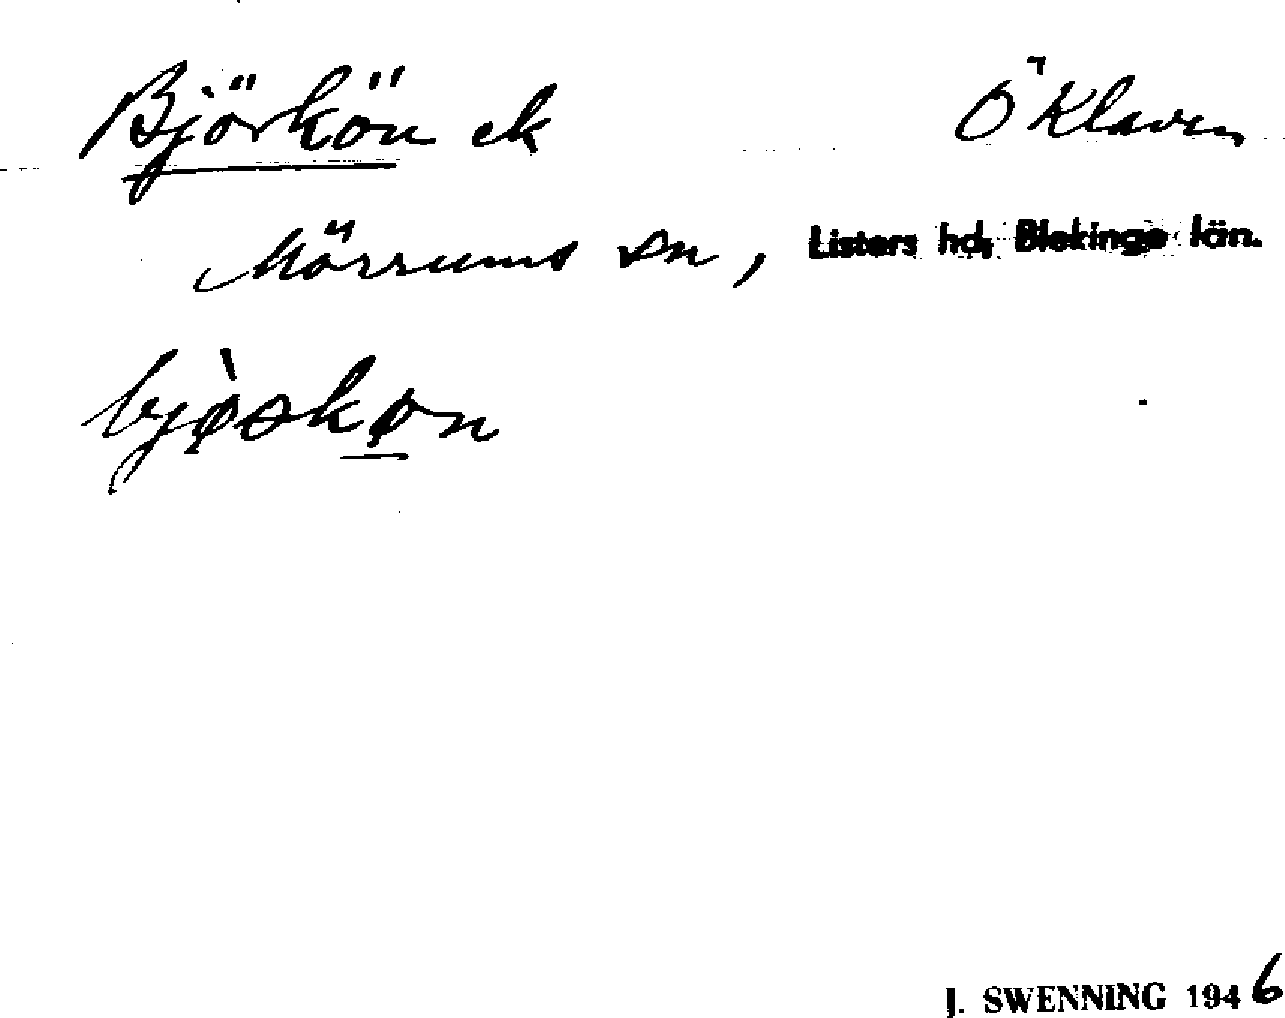 Björkön ek Ö Klaven
Mörrums sn, Listers hd, Blekinge län.
J. SWENNING 1946